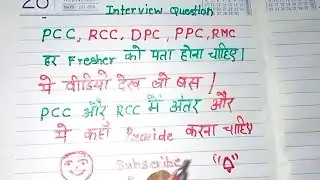 Interview Question
PCC, RCC, DPC, PPC, RMC
हर Fresher को पता होना चाहिए।
ये वीडियो देख लो बस !
PCC और RCC में अंतर और
ये कहाँ Provide करना चाहिए
Subscribe